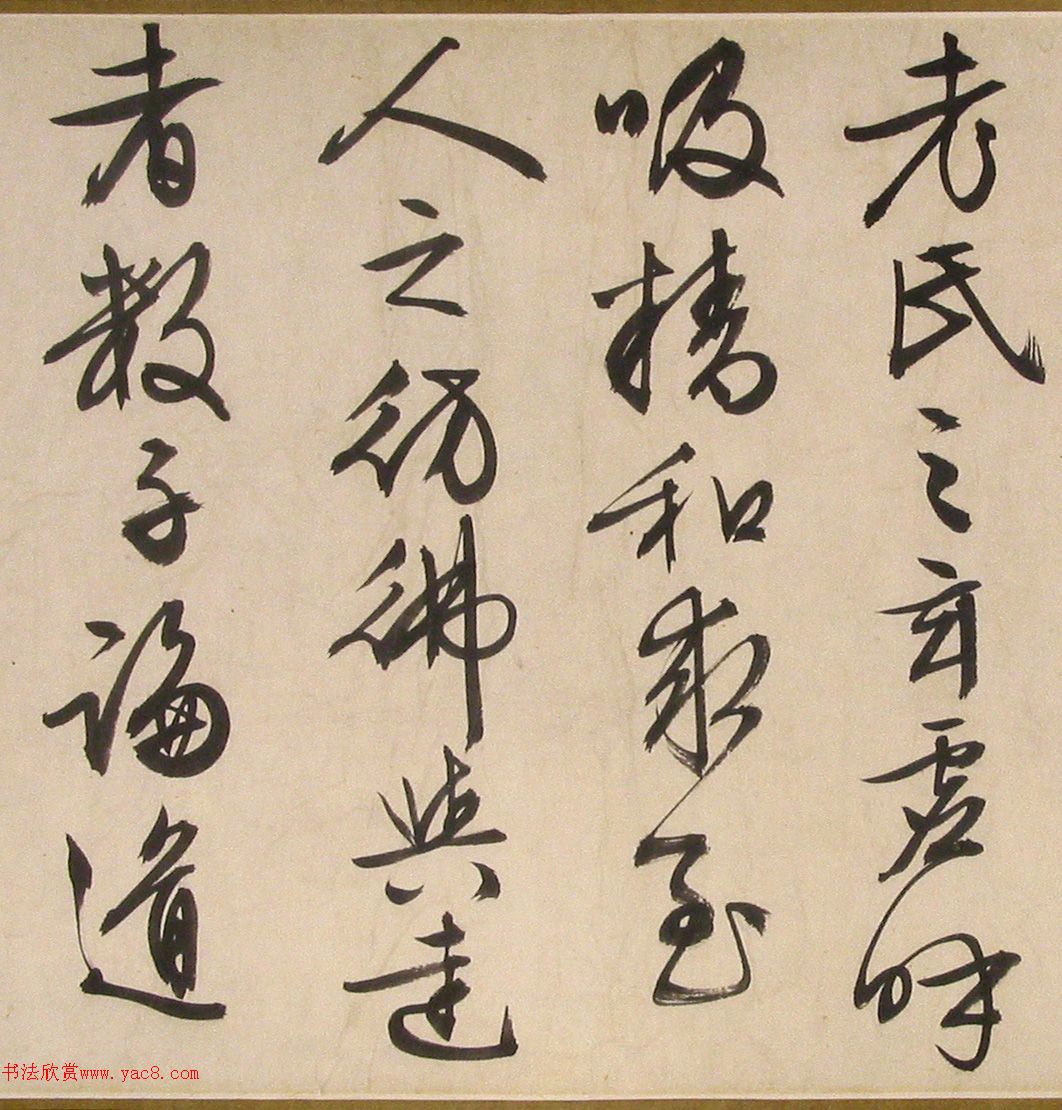 老氏之玄虚呼
吸精和求至
人之仿佛與達
者数子論道
书法欣赏www.yac8.com